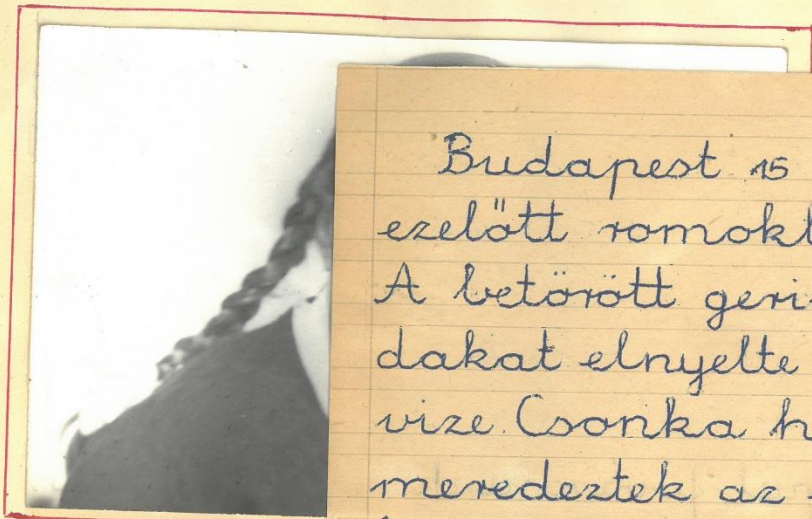 Budapest 15
ezelőtt romokb
A betörött geri-
dakat elnyelte
vize. Csonka h
meredeztek az